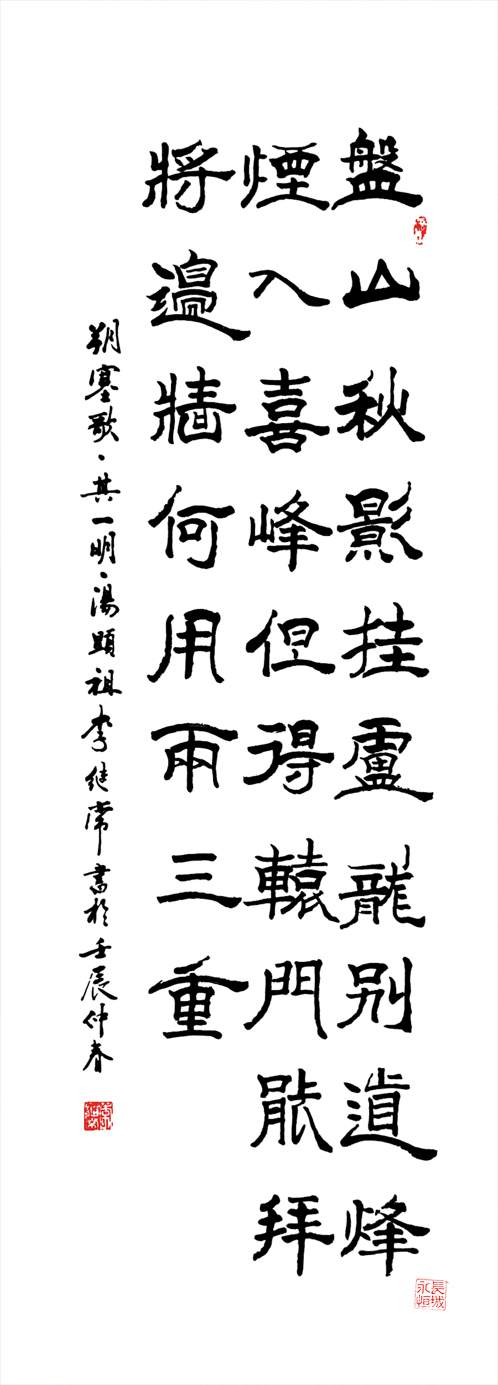 盤山秋影挂盧龍别道烽
煙入喜峰但得轅門能拜
將邊牆何用兩三重
朔塞歌·其一明·湯顯祖李继常書於壬辰仲春
長城永恒